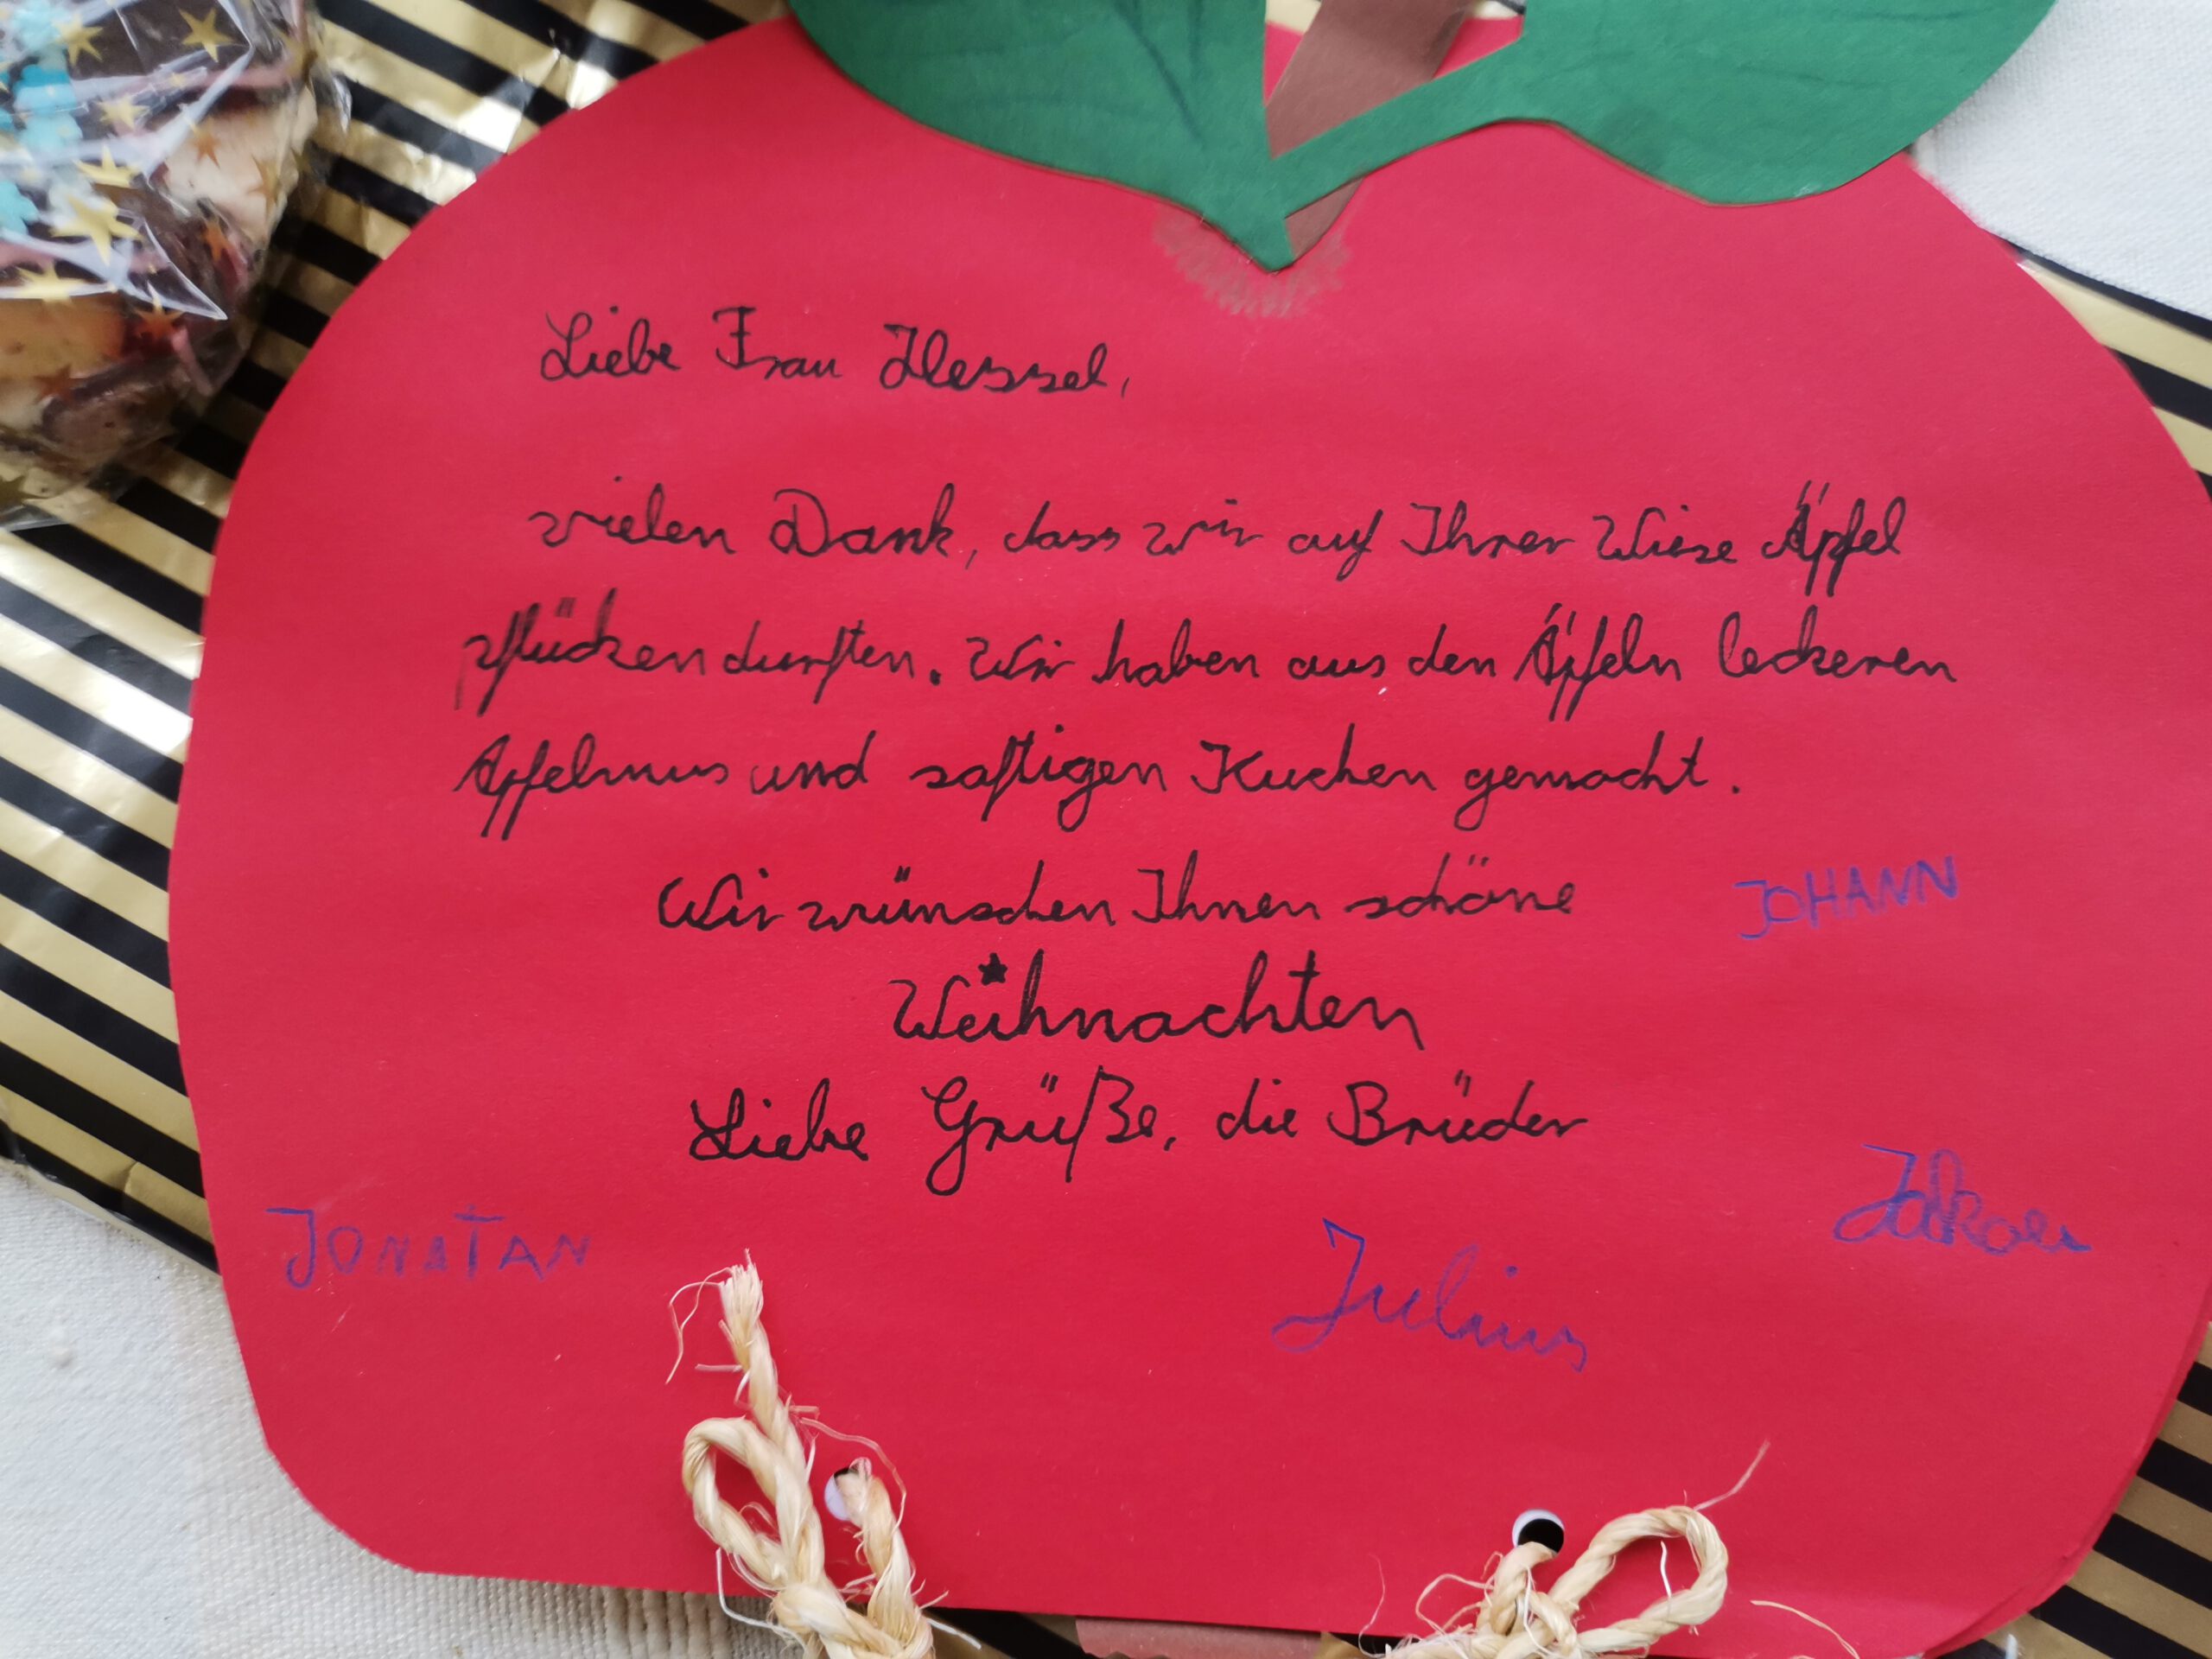 Liebe Frau Hessel,
vielen Dank, dass wir auf Ihrer Wiese Äpfel
pflücken durften. Wir haben aus den Äpfeln leckeren
Apfelmus und saftigen Kuchen gemacht.
Wir wünschen Ihnen schöne
JOHANN
Weihnachten
Liebe Grüße, die Brüder
JONATAN
Julius
Jakob